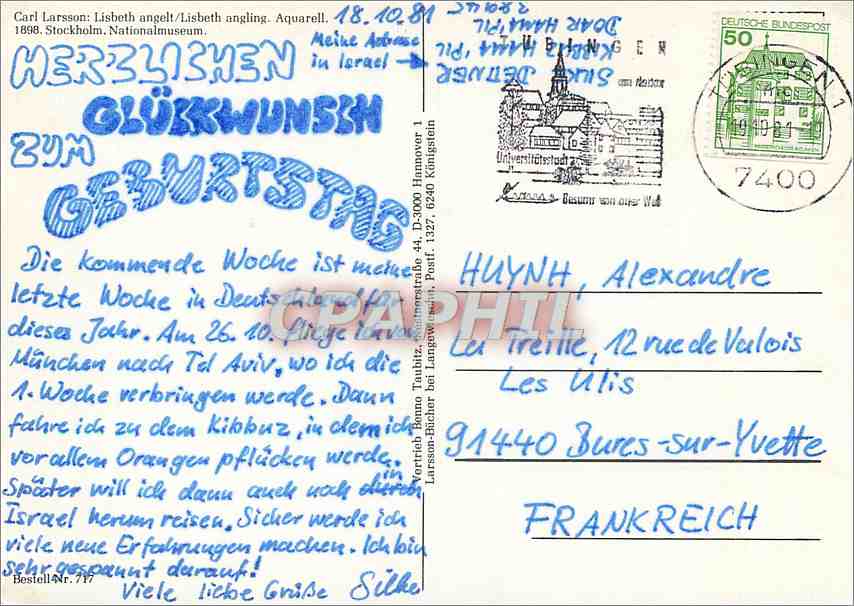 Carl Larsson: Lisbeth angelt/Lisbeth angling. Aquarell.
1898. Stockholm, Nationalmuseum.
18.10.81
Meine Adresse
in Israel →
SILKE DETTNER
KIBBUZ HAMA'PIL
DOAR HAMA'PIL
HERZLICHEN
GLÜCKWUNSCH
ZUM
GEBURTSTAG
Die kommende Woche ist meine
letzte Woche in Deutschland für
dieses Jahr. Am 26.10. fliege ich von
München nach Tel Aviv, wo ich die
1. Woche verbringen werde. Dann
fahre ich zu dem Kibbuz, in dem ich
vor allem Orangen pflücken werde.
Später will ich dann auch noch in
Israel herumreisen. Sicher werde ich
viele neue Erfahrungen machen. Ich bin
sehr gespannt darauf!
Bestell-Nr. 717
Viele liebe Grüße Silke
Vertrieb Benno Taubitz, 44, D-3000 Hannover 1
Larsson-Bücher bei Langewiesche, Postf. 1327, 6240 Königstein
TUEBINGEN
am Neckar
Universitätsstadt
DEUTSCHE BUNDESPOST
50
TÜBINGEN 1
7400
HUYNH, Alexandre
La Treille, 12 rue de Valois
Les Ulis
91440 Bures-sur-Yvette
FRANKREICH
CPAPHIL